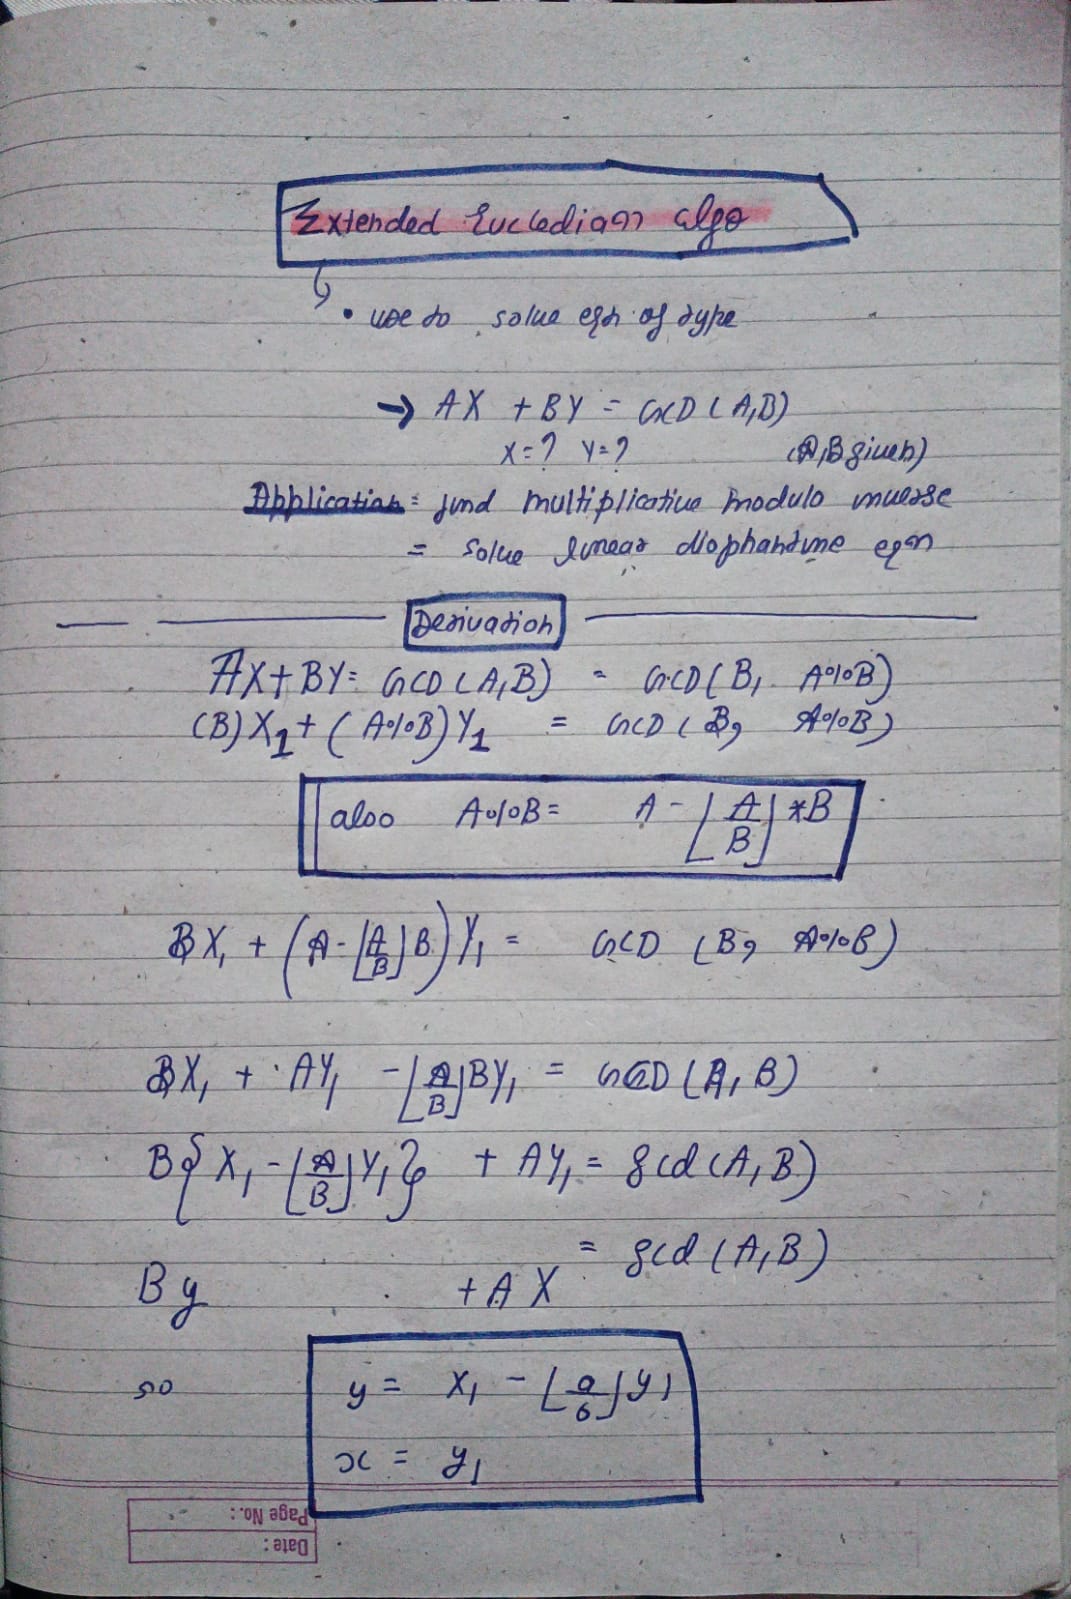 Extended Eucledian algo
• use to solve eqn of type
→ AX + BY = GCD (A,B)
X=? Y=? (A,B given)
Application = find multiplicative modulo inverse
= solve linear diophantine eqn
Derivation
AX+BY = GCD (A,B) = GCD (B, A%B)
(B)X₁ + (A%B)Y₁ = GCD (B, A%B)
also A%B = A - ⌊A/B⌋ *B
BX₁ + (A - ⌊A/B⌋B)Y₁ = GCD (B, A%B)
BX₁ + AY₁ - ⌊A/B⌋BY₁ = GCD (A, B)
B{X₁ - ⌊A/B⌋Y₁} + AY₁ = gcd (A, B)
By + AX = gcd (A, B)
so y = x₁ - ⌊a/b⌋y₁
x = y₁
Page No.:
Date: